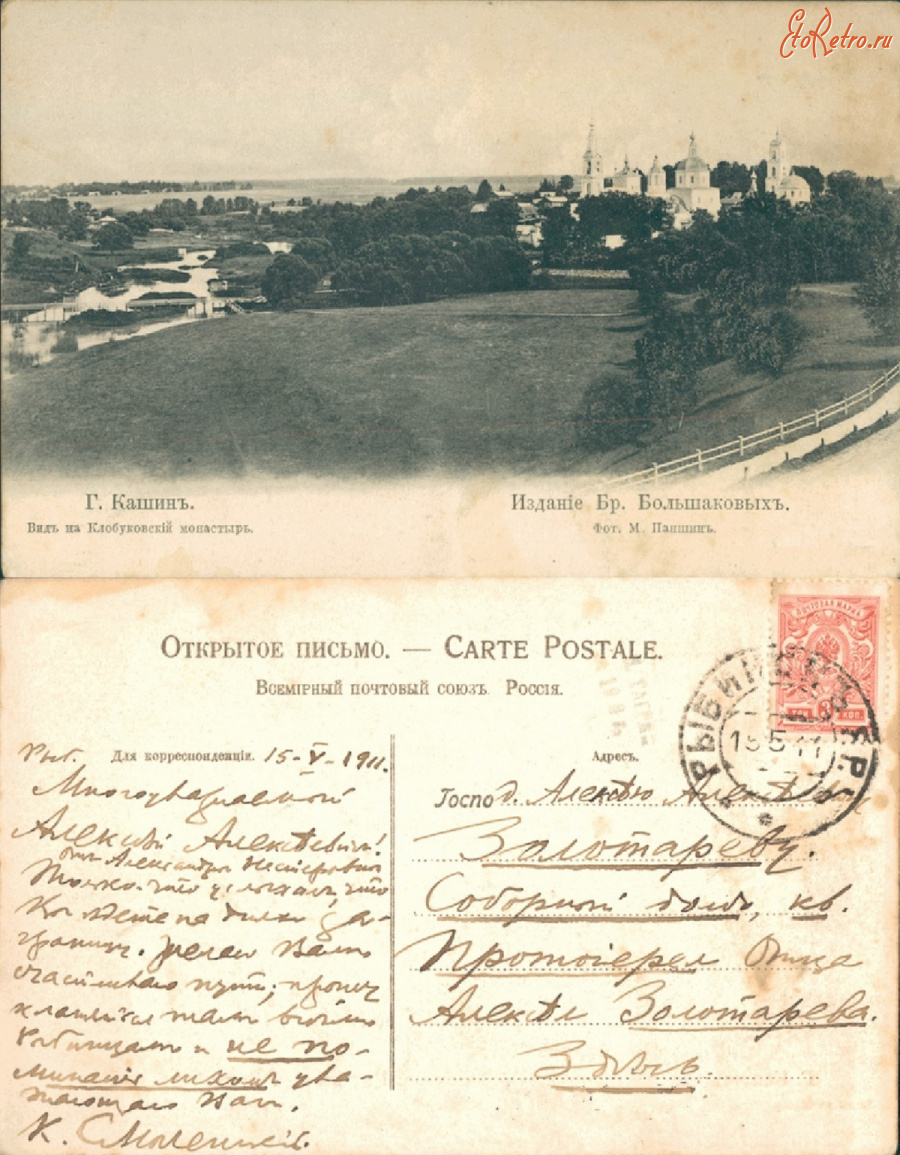 EtoRetro.ru
Г. Кашинъ.
Видъ на Клобуковскій монастырь.
Изданіе Бр. Большаковыхъ.
Фот. М. Паншинъ.
Открытое письмо. — Carte Postale.
Всемірный почтовый союзъ. Россія.
ПОЧТОВАЯ МАРКА
ТРИ 3 КОП.
РЫБИНСКЪ ЯР.
15 5 11
Рыб. Для корреспонденціи. 15-V-1911.
Многоуважаемый
Алексѣй Алексѣевичъ!
отъ Александра Нестеровича
Только что услыхалъ, что
Вы ѣдете на дняхъ за-
границу. Желаю Вамъ
счастливаго пути, прошу
кланяться тамъ
и не по-
минайте лихомъ ува-
жающаго Васъ.
К.
Адресъ.
Господ. Алексѣю Алексѣевичу
Золотареву.
Соборный домъ, кв.
Протоіерея Отца
Алексѣя Золотарева.
Здѣсь.